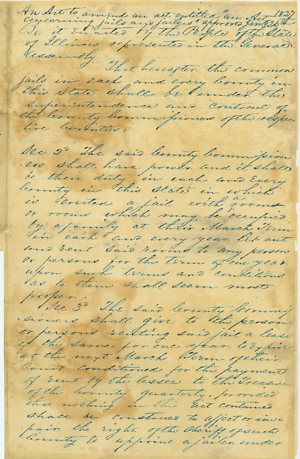 An Act to amend an act entitled "an Act
concerning jails and jailers" approved Jany 26th 1827
Be it enacted by the People of the State
of Illinois represented in the General
Assembly
That hereafter the common
jails in each and every County in
this State shall be under the
superintendance and controul of
the County Commissioners of the respec
tive Counties.
Sec 2d The said County Commission
ers shall have power and it shall
be their duty in each and every
County in this State in which
is erected a jail with rooms
or room which may be occupied
by a family at their March Term
in each and every year let out
and rent said rooms to any person
or persons for the term of one year
upon such terms and conditions
as to them shall seem most
proper.
Sec 3d The said County Commis
sioners shall give to the person
or persons renting said jail a lease
of the same for one year to expire
at the next March Term of their
court conditioned for the payments
of rent by the lessee to the Treasurer
of the County quarterly, provided
that nothing in this act contained
shall be construed to affect or im
pair the right of the Sheriff of such
County to appoint a jailor under